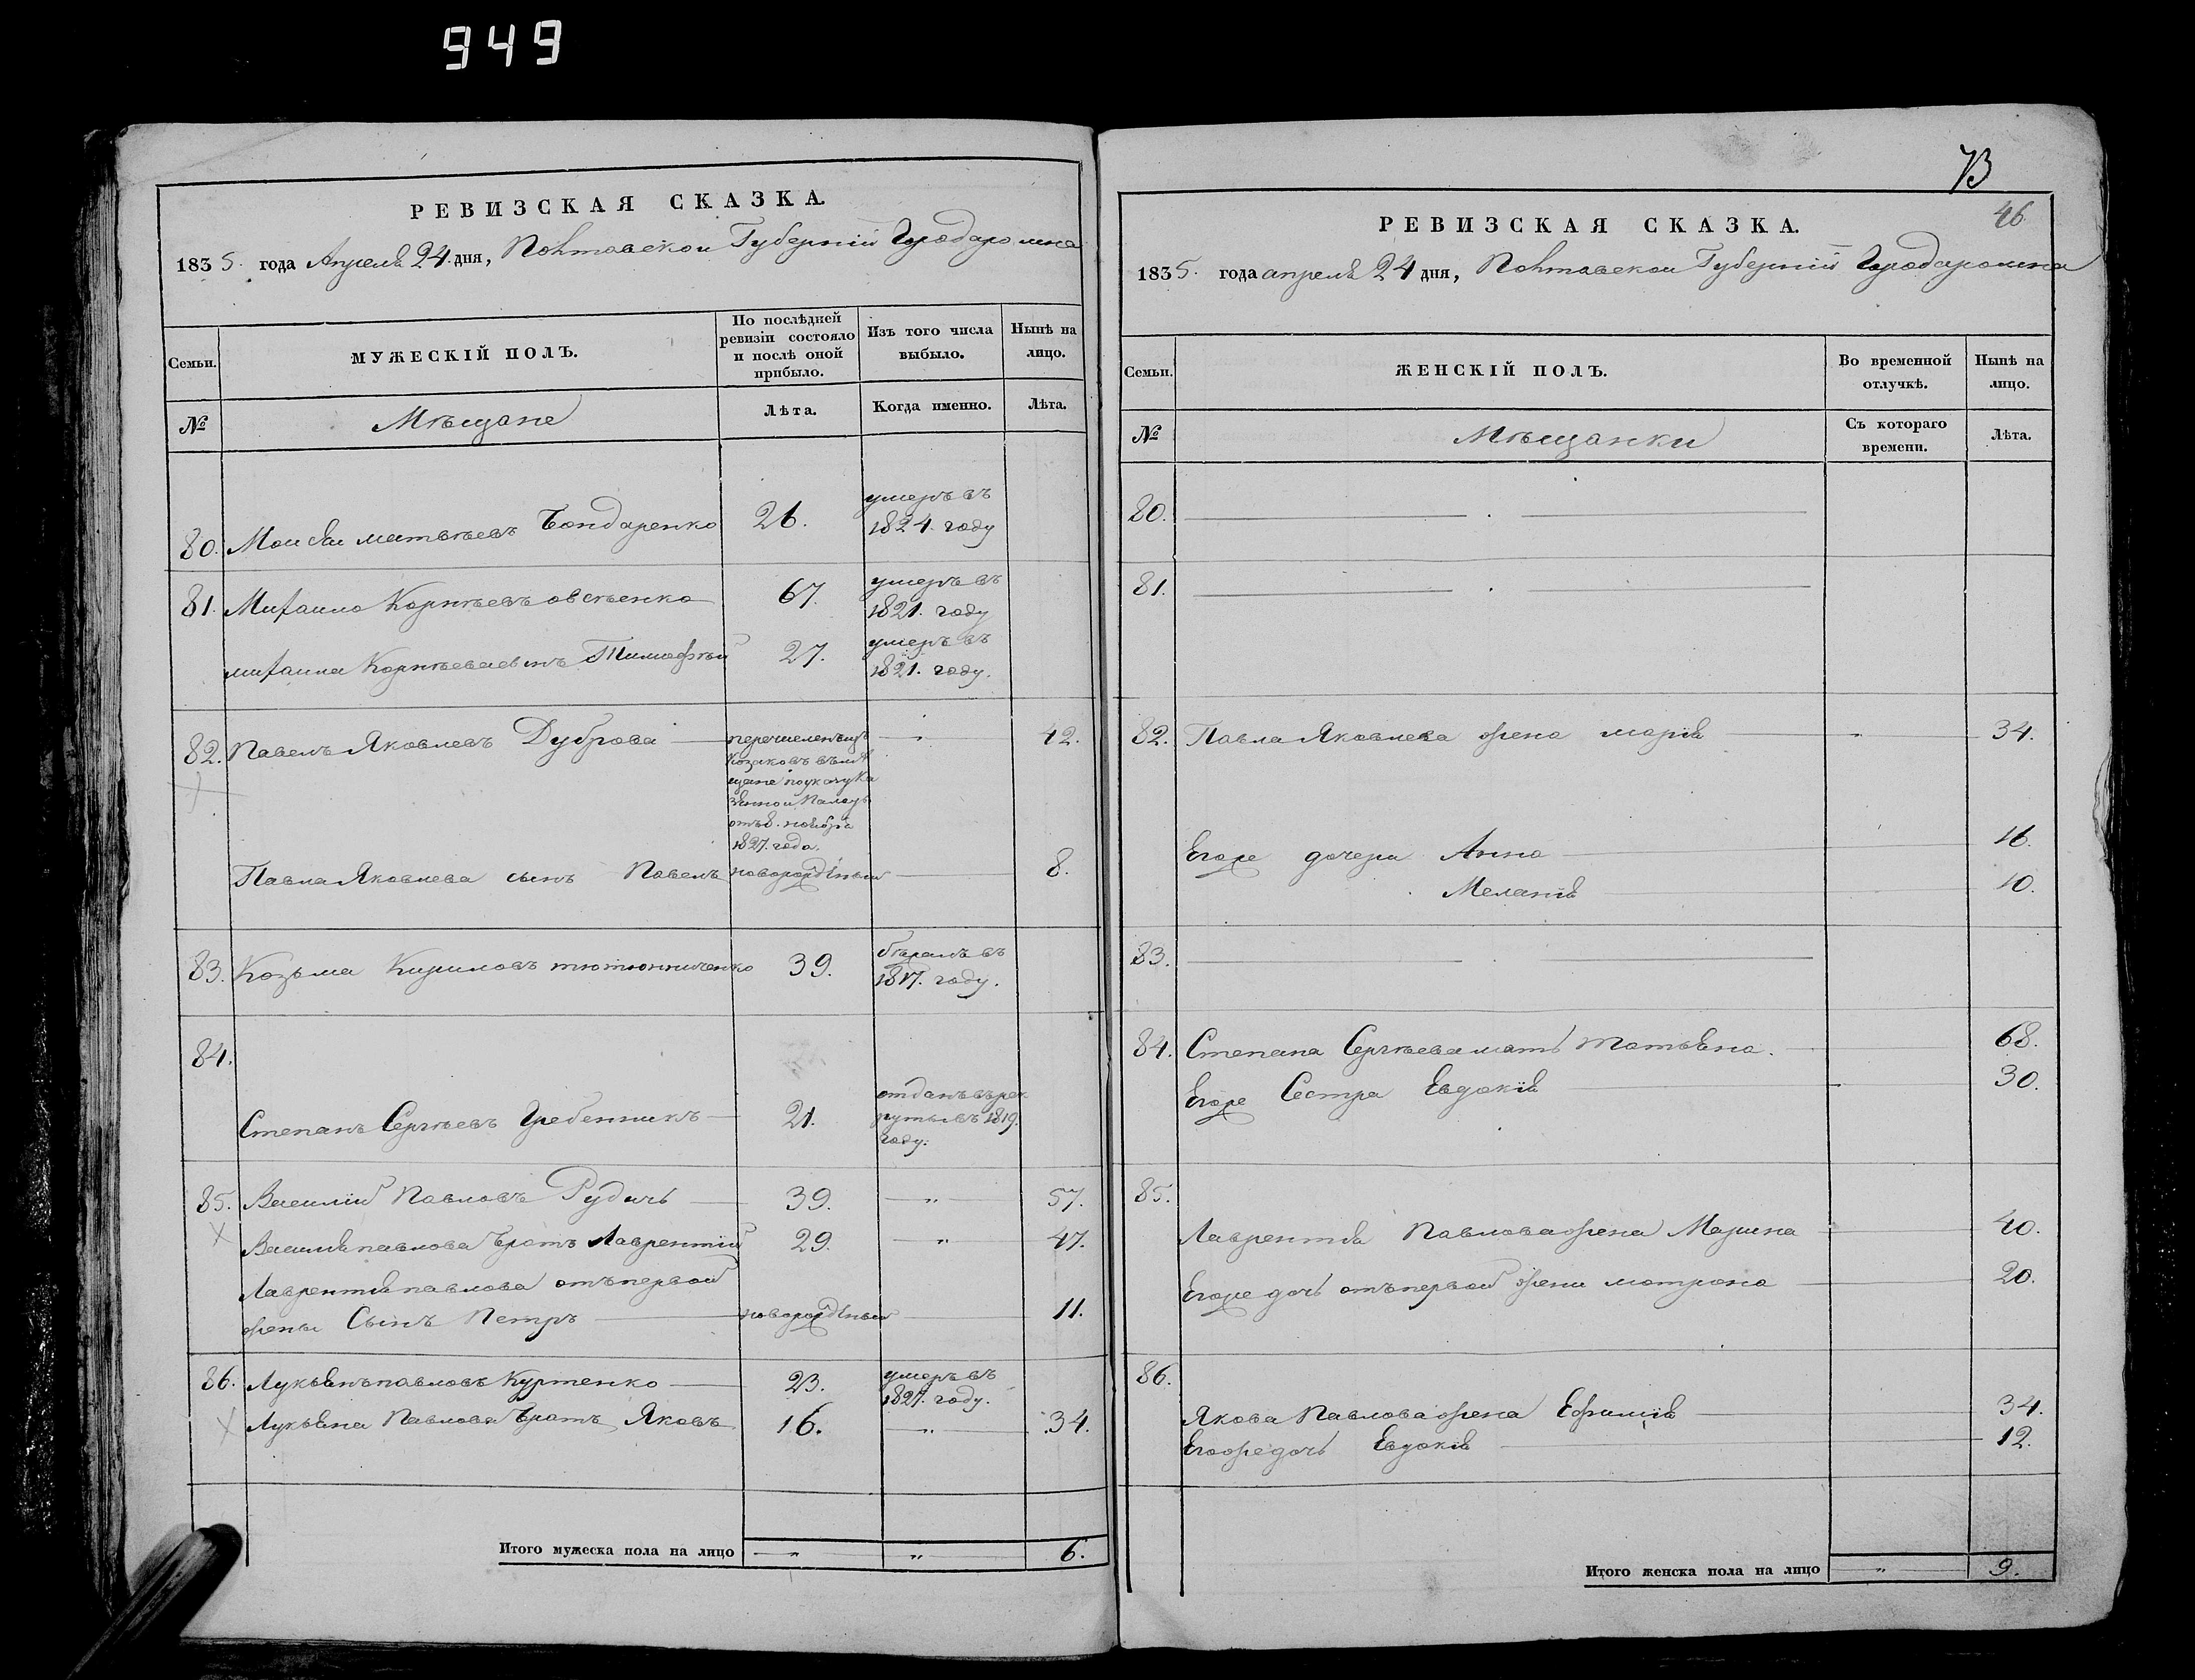 949
РЕВИЗСКАЯ СКАЗКА.
1835. года Апреля 24 дня, Полтавской Губерніи Города ромна
Семьи.
МУЖЕСКІЙ ПОЛЪ.
По послѣдней ревизіи состояло и послѣ оной прибыло.
Изъ того числа выбыло.
Нынѣ на лицо.
№
Мѣщане
Лѣта.
Когда именно.
Лѣта.
80. Моисей матвѣевъ Бондаренко 26. умеръ въ
1824. году
81. Михаило Корнѣевъ овсѣенко 67. умеръ въ
1821. году
михаила Корнѣева сынъ Тимофѣй 27. умеръ въ
1821. году.
82. Павелъ Яковлевъ Дуброва — перечисленъ изъ — „ — 42.
Козаковъ въ мѣ
щане по указу Ка
зенной Палаты
отъ 8. ноября
1827. года.
Павла Яковлева сынъ Павелъ новорожденный — 8.
83. Козьма Кириловъ тютюнниченко 39. бѣжалъ въ
1817. году.
84.
Степанъ Сергѣевъ Гребенникъ — 21. отданъ въ рек
руты въ 1819.
году.
85. Василій Павловъ Рудичь — 39. — „ — 57.
Василія павлова братъ Лаврентій 29. — „ — 47.
Лаврентія павлова отъ первой
жены Сынъ Петръ — новорожденный — 11.
86. Лукьянъ павловъ Куртенко — 23. умеръ въ
1827. году.
Лукьяна Павлова братъ Яковъ 16. — „ — 34.
Итого мужеска пола на лицо — „ — „ — 6.
73
46
РЕВИЗСКАЯ СКАЗКА.
1835. года апреля 24 дня, Полтавской Губерніи Города ромна
Семьи.
ЖЕНСКІЙ ПОЛЪ.
Во временной отлучкѣ.
Нынѣ на лицо.
№
Мѣщанки
Съ котораго времени.
Лѣта.
80. — . —
81. — . —
82. Павла Яковлева жена марія — „ — 34.
Егоже дочери Анна — 16.
Меланія — 10.
83. — . —
84. Степана Сергѣева мать татьяна. — 68.
Егоже Сестра Евдокія — 30.
85.
Лаврентія Павлова жена Марина — 40.
Егоже дочь отъ первой жены матрона — 20.
86.
Якова Павлова жена Ефимія — 34.
Егоже дочь Евдокія — 12.
Итого женска пола на лицо — „ — 9.